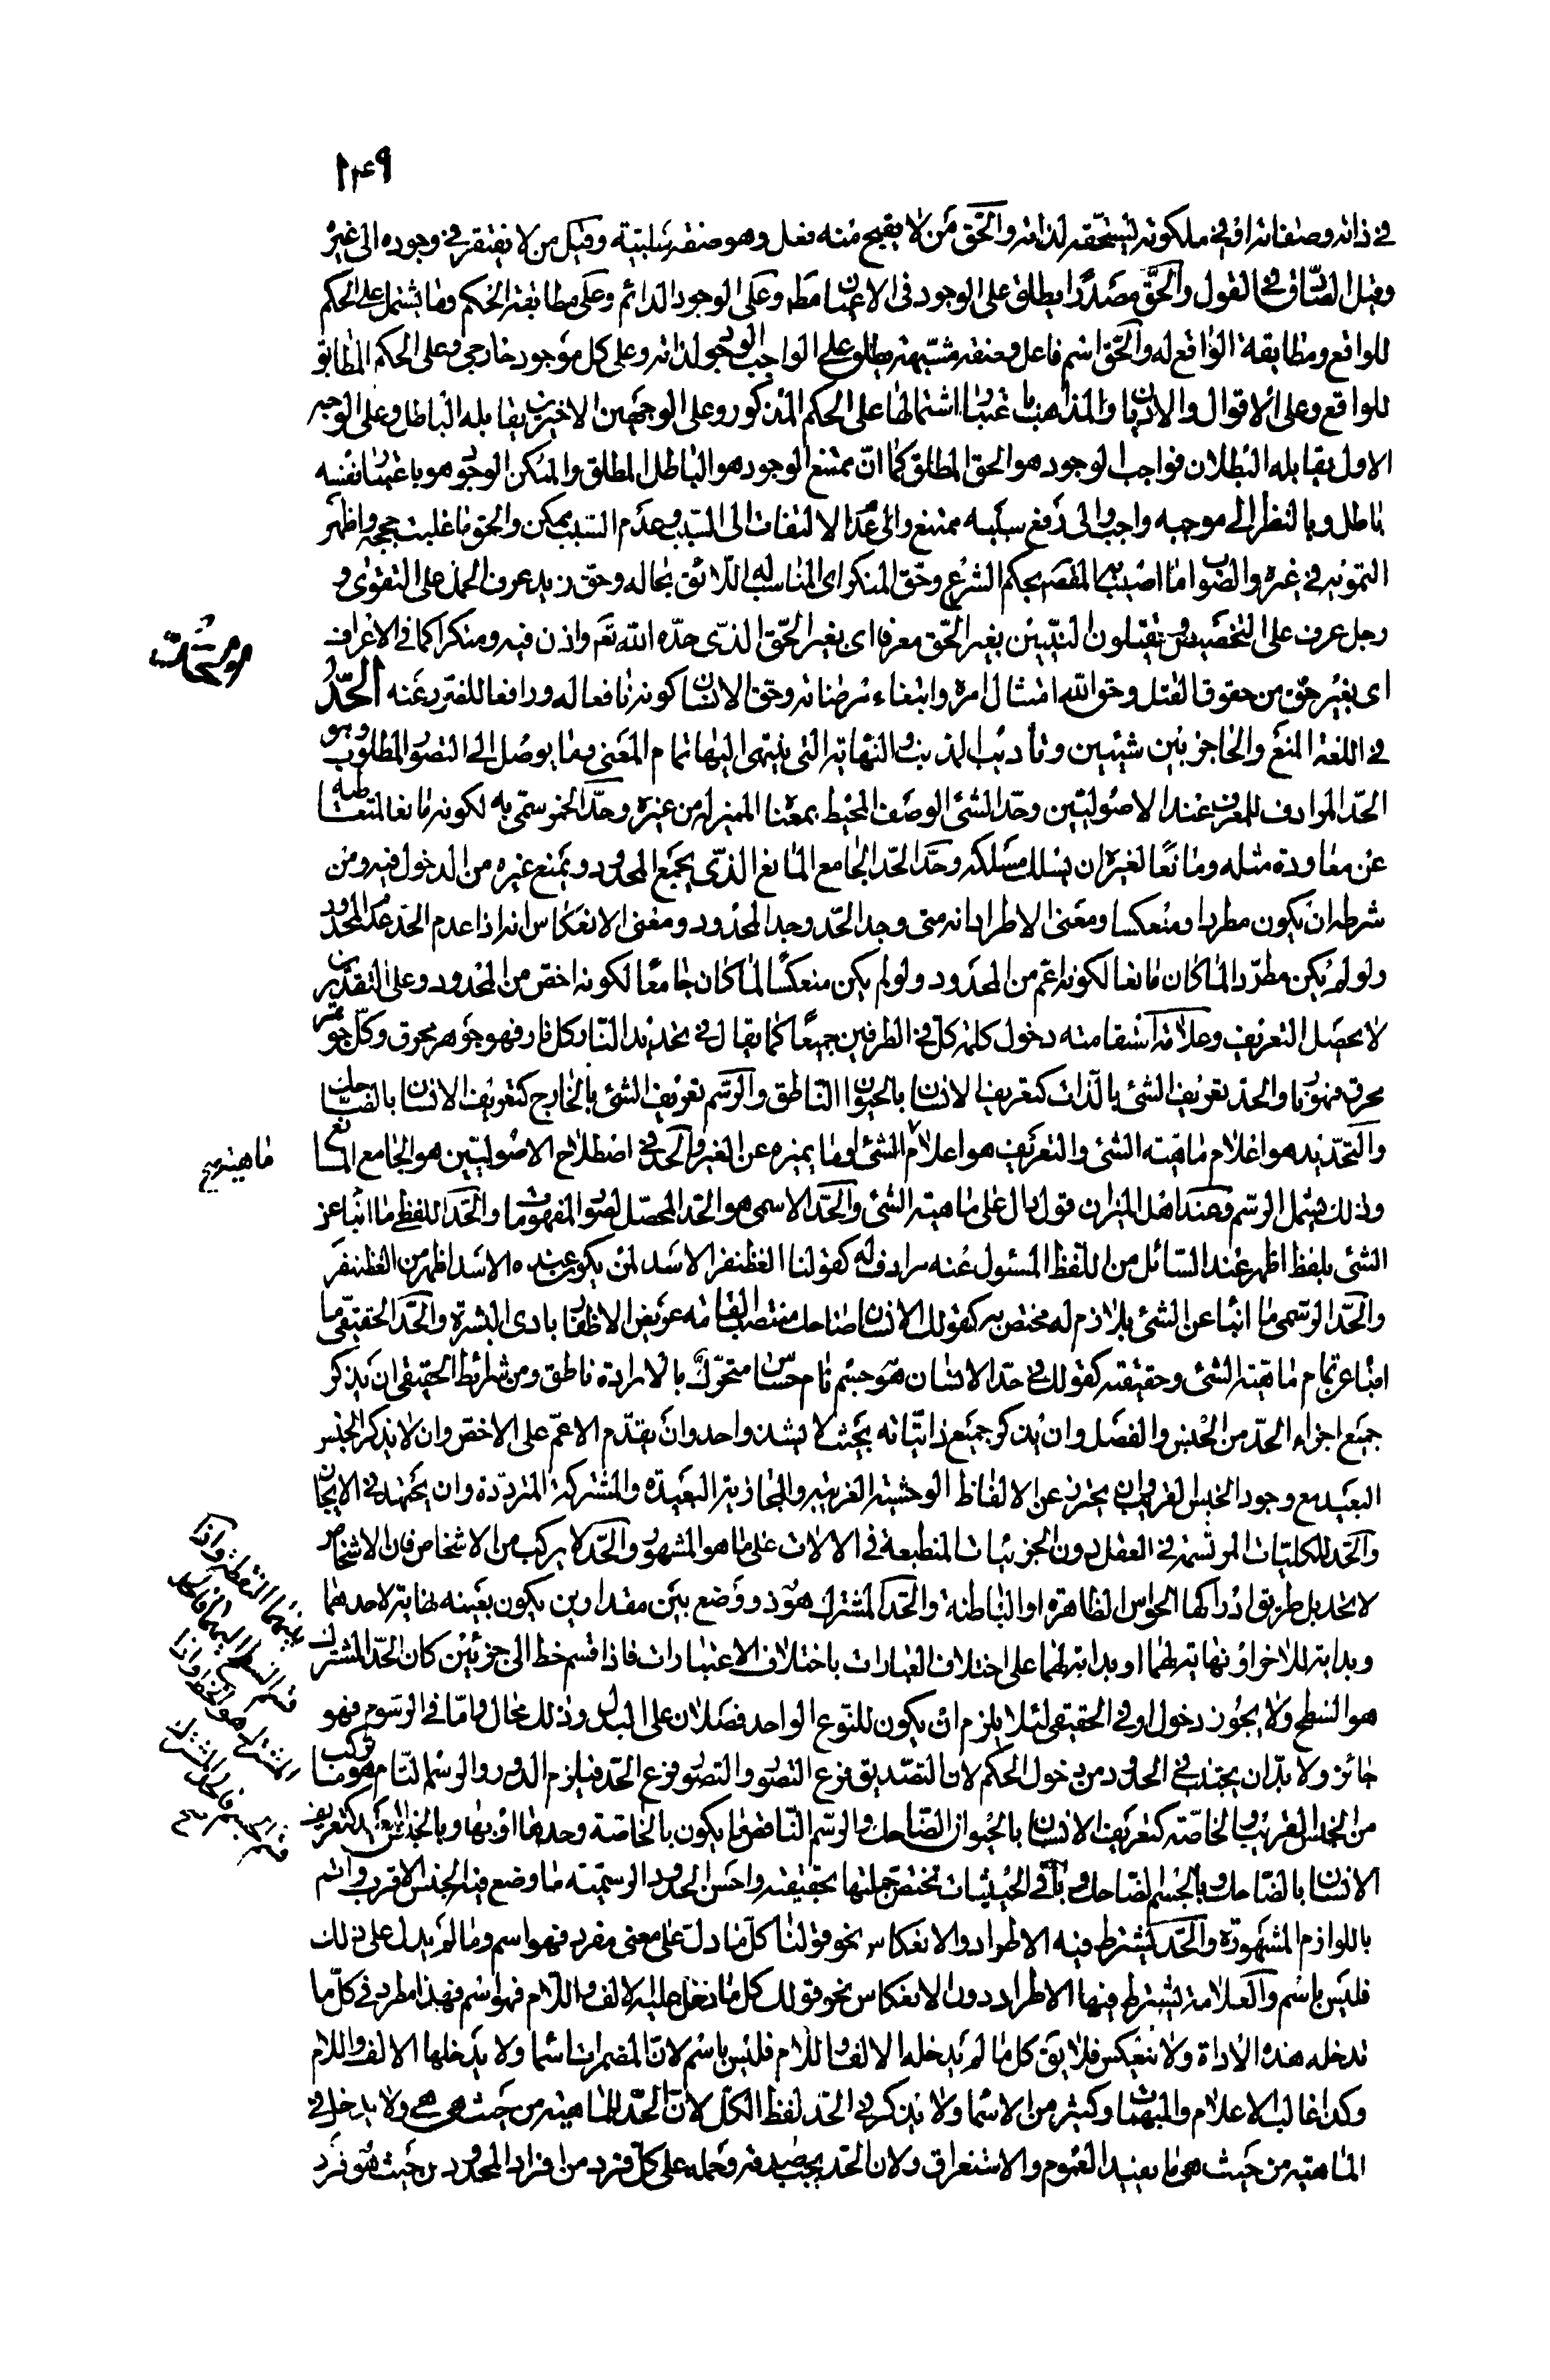 ١٤٩
في ذاته وصفاته او في ملكوته يستحقه لذاته والحق من لا يقبح منه فعل وهو صفة سلبية وقيل من لا يفتقر في وجوده الى غيره
وقيل الصادق في القول والحق مصدرا يطلق على الوجود في الاعيان مط وعلى الوجود الدائم وعلى مطابقة الحكم وما يشتمل على الحكم
للواقع ومطابقة الواقع له والحق اسم فاعل وصفة مشبهة يطلق على الواجب الوجود لذاته وعلى كل موجود خارجي وعلى الحكم المطابق
للواقع وعلى الاقوال والاديان والمذاهب باعتبار اشتمالها على الحكم المذكور وعلى الوجهين الاخيرين يقابله الباطل وعلى الوجه
الاول يقابله البطلان فواجب الوجود هو الحق المطلق كما ان ممتنع الوجود هو الباطل المطلق والممكن الوجود هو باعتبار نفسه
باطل وبالنظر الى موجبه واجب والى رفع سببه ممتنع والى عدم الالتفات الى السبب وعدم السبب ممكن والحق ما غلبت حججه واظهر
التمويه في غيره والصواب ما اصيب به المقصد بحكم الشرع وحق المنكر اى المناسب له اللائق بحاله وحق زيد عرف الحمل على التقوى و
رجل عرف على التخصيص وتقتلون النبيين بغير الحق معرفا اى بغير الحق الذى حده الله تع واذن فيه ومنكرا كما في الاعراف
اى بغير حق من حقوق القتل وحق الله امتثال امره وابتغاء مرضاته وحق الانسان كونه نافعا له ورافعا للضرر عنه الحدّ
في اللغة المنع والحاجز بين شيئين وتأديب المذنب والنهاية التى ينتهى اليها تمام المعنى وما يوصل الى التصور المطلوب وهو
الحد المرادف للمعرف عند الاصوليين وحد الشئ الوصف المحيط بمعناه المميز له من غيره وحد الخمر سمى به لكونه مانعا لمتعاطيه
عن معاودة مثله ومانعا لغيره ان يسلك مسلكه وحد الحد الجامع المانع الذى يجمع المحدود ويمنع غيره من الدخول فيه ومن
شرطه ان يكون مطردا ومنعكسا ومعنى الاطراد انه متى وجد الحد وجد المحدود ومعنى الانعكاس انه اذا عدم الحد عدم المحدود
ولو لم يكن مطردا لما كان مانعا لكونه اعم من المحدود ولو لم يكن منعكسا لما كان جامعا لكونه اخص من المحدود وعلى التقديرين
لا يحصل التعريف وعلامة استقامته دخول كلمة كل في الطرفين جميعا كما يقال في تحديد النار كل نار فهو جوهر محرق وكل جوهر
محرق فهو نار والحد تعريف الشئ بالذات كتعريف الانسان بالحيوان الناطق والرسم تعريف الشئ بالخارج كتعريف الانسان بالضاحك
والتحديد هو اعلام ماهية الشئ والتعريف هو اعلام الشئ او ما يميزه عن الغير والحد في اصطلاح الاصوليين هو الجامع المانع
ماهية صح
وذلك يشمل الرسم وعند اهل الميزان قول دال على ماهية الشئ والحد الاسمى هو الحد المحصل لصور المفهومات والحد اللفظى ما انبأ عن
الشئ بلفظ اظهر عند السائل من اللفظ المسئول عنه مرادف له كقولنا الغظنفر الاسد لمن يكون عنده الاسد اظهر من الغظنفر
والحد الرسمى ما انبأ عن الشئ بلازم له مختص به كقولك الانسان ضاحك منتصب القامة عريض الاظفار بادى البشرة والحد الحقيقى ما
انبأ عن تمام ماهية الشئ وحقيقته كقولك في حد الانسان هو جسم نام حساس متحرك بالارادة ناطق ومن شرائط الحقيقى ان يذكر
جميع اجزاء الحد من الجنس والفصل وان يذكر جميع ذاتياته بحيث لا يشذ واحد وان يقدم الاعم على الاخص وان لا يذكر الجنس
البعيد مع وجود الجنس القريب وان يحترز عن الالفاظ الوحشية الغريبة والمجازية البعيدة والمشتركة المترددة وان يجتهد في الايجاز
والحد للكليات المرتسمة في العقل دون الجزئيات المنطبعة في الالات على ما هو المشهور والحد لا يركب من الاشخاص فان الاشخاص
لا تحد بل طريق ادراكها الحواس الظاهرة او الباطنة والحد المشترك هو ذو وضع بين مقدارين يكون بعينه نهاية لاحدهما
وبداية للاخر او نهاية لهما او بداية لهما على اختلاف العبارات باختلاف الاعتبارات فاذا قسم خط الى جزئين كان الحد المشترك
بينهما النقطة واذا
قسم السطح اليهما فالحد
المشترك هو الخط واذا
قسم الجسم فالحد المشترك
هو السطح ولا يجوز دخول او في الحقيقى لئلا يلزم ان يكون للنوع الواحد فصلان على البدل وذلك محال واما في الرسوم فهو
جائز ولا بد ان يجتنب في الحدود من دخول الحكم لان التصديق فرع التصور والتصور فرع الحد فيلزم الدور والرسم التام هو ما تركب
من الجنس القريب والخاصة كتعريف الانسان بالحيوان الضاحك والرسم الناقص ما يكون بالخاصة وحدها او بها وبالجنس البعيد كتعريف
الانسان بالضاحك وبالجسم الضاحك وباقي الحيثيات تختص جملتها بحقيقته واحسن الحدود الرسمية ما وضع فيه الجنس الاقرب واتم
باللوازم المشهورة والحد يشترط فيه الاطراد والانعكاس نحو قولنا كل ما دل على معنى مفرد فهو اسم وما لم يدل على ذلك
فليس باسم والعلامة يشترط فيها الاطراد دون الانعكاس نحو قولك كل ما دخل عليه الالف واللام فهو اسم فهذا مطرد في كل ما
تدخله هذه الاداة ولا ينعكس فلا يق كل ما لم يدخله الالف واللام فليس باسم لان المضمرات اسما ولا يدخلها الالف واللام
وكذا غالب الاعلام والمبهمات وكثير من الاسما ولا يذكر في الحد لفظ الكل لان الحد للماهية من حيث هى هى ولا يدخل في
الماهية من حيث هى ما يفيد العموم والاستغراق ولان الحد يجب صدقه وحمله على كل فرد من افراد المحدود من حيث هو فرد